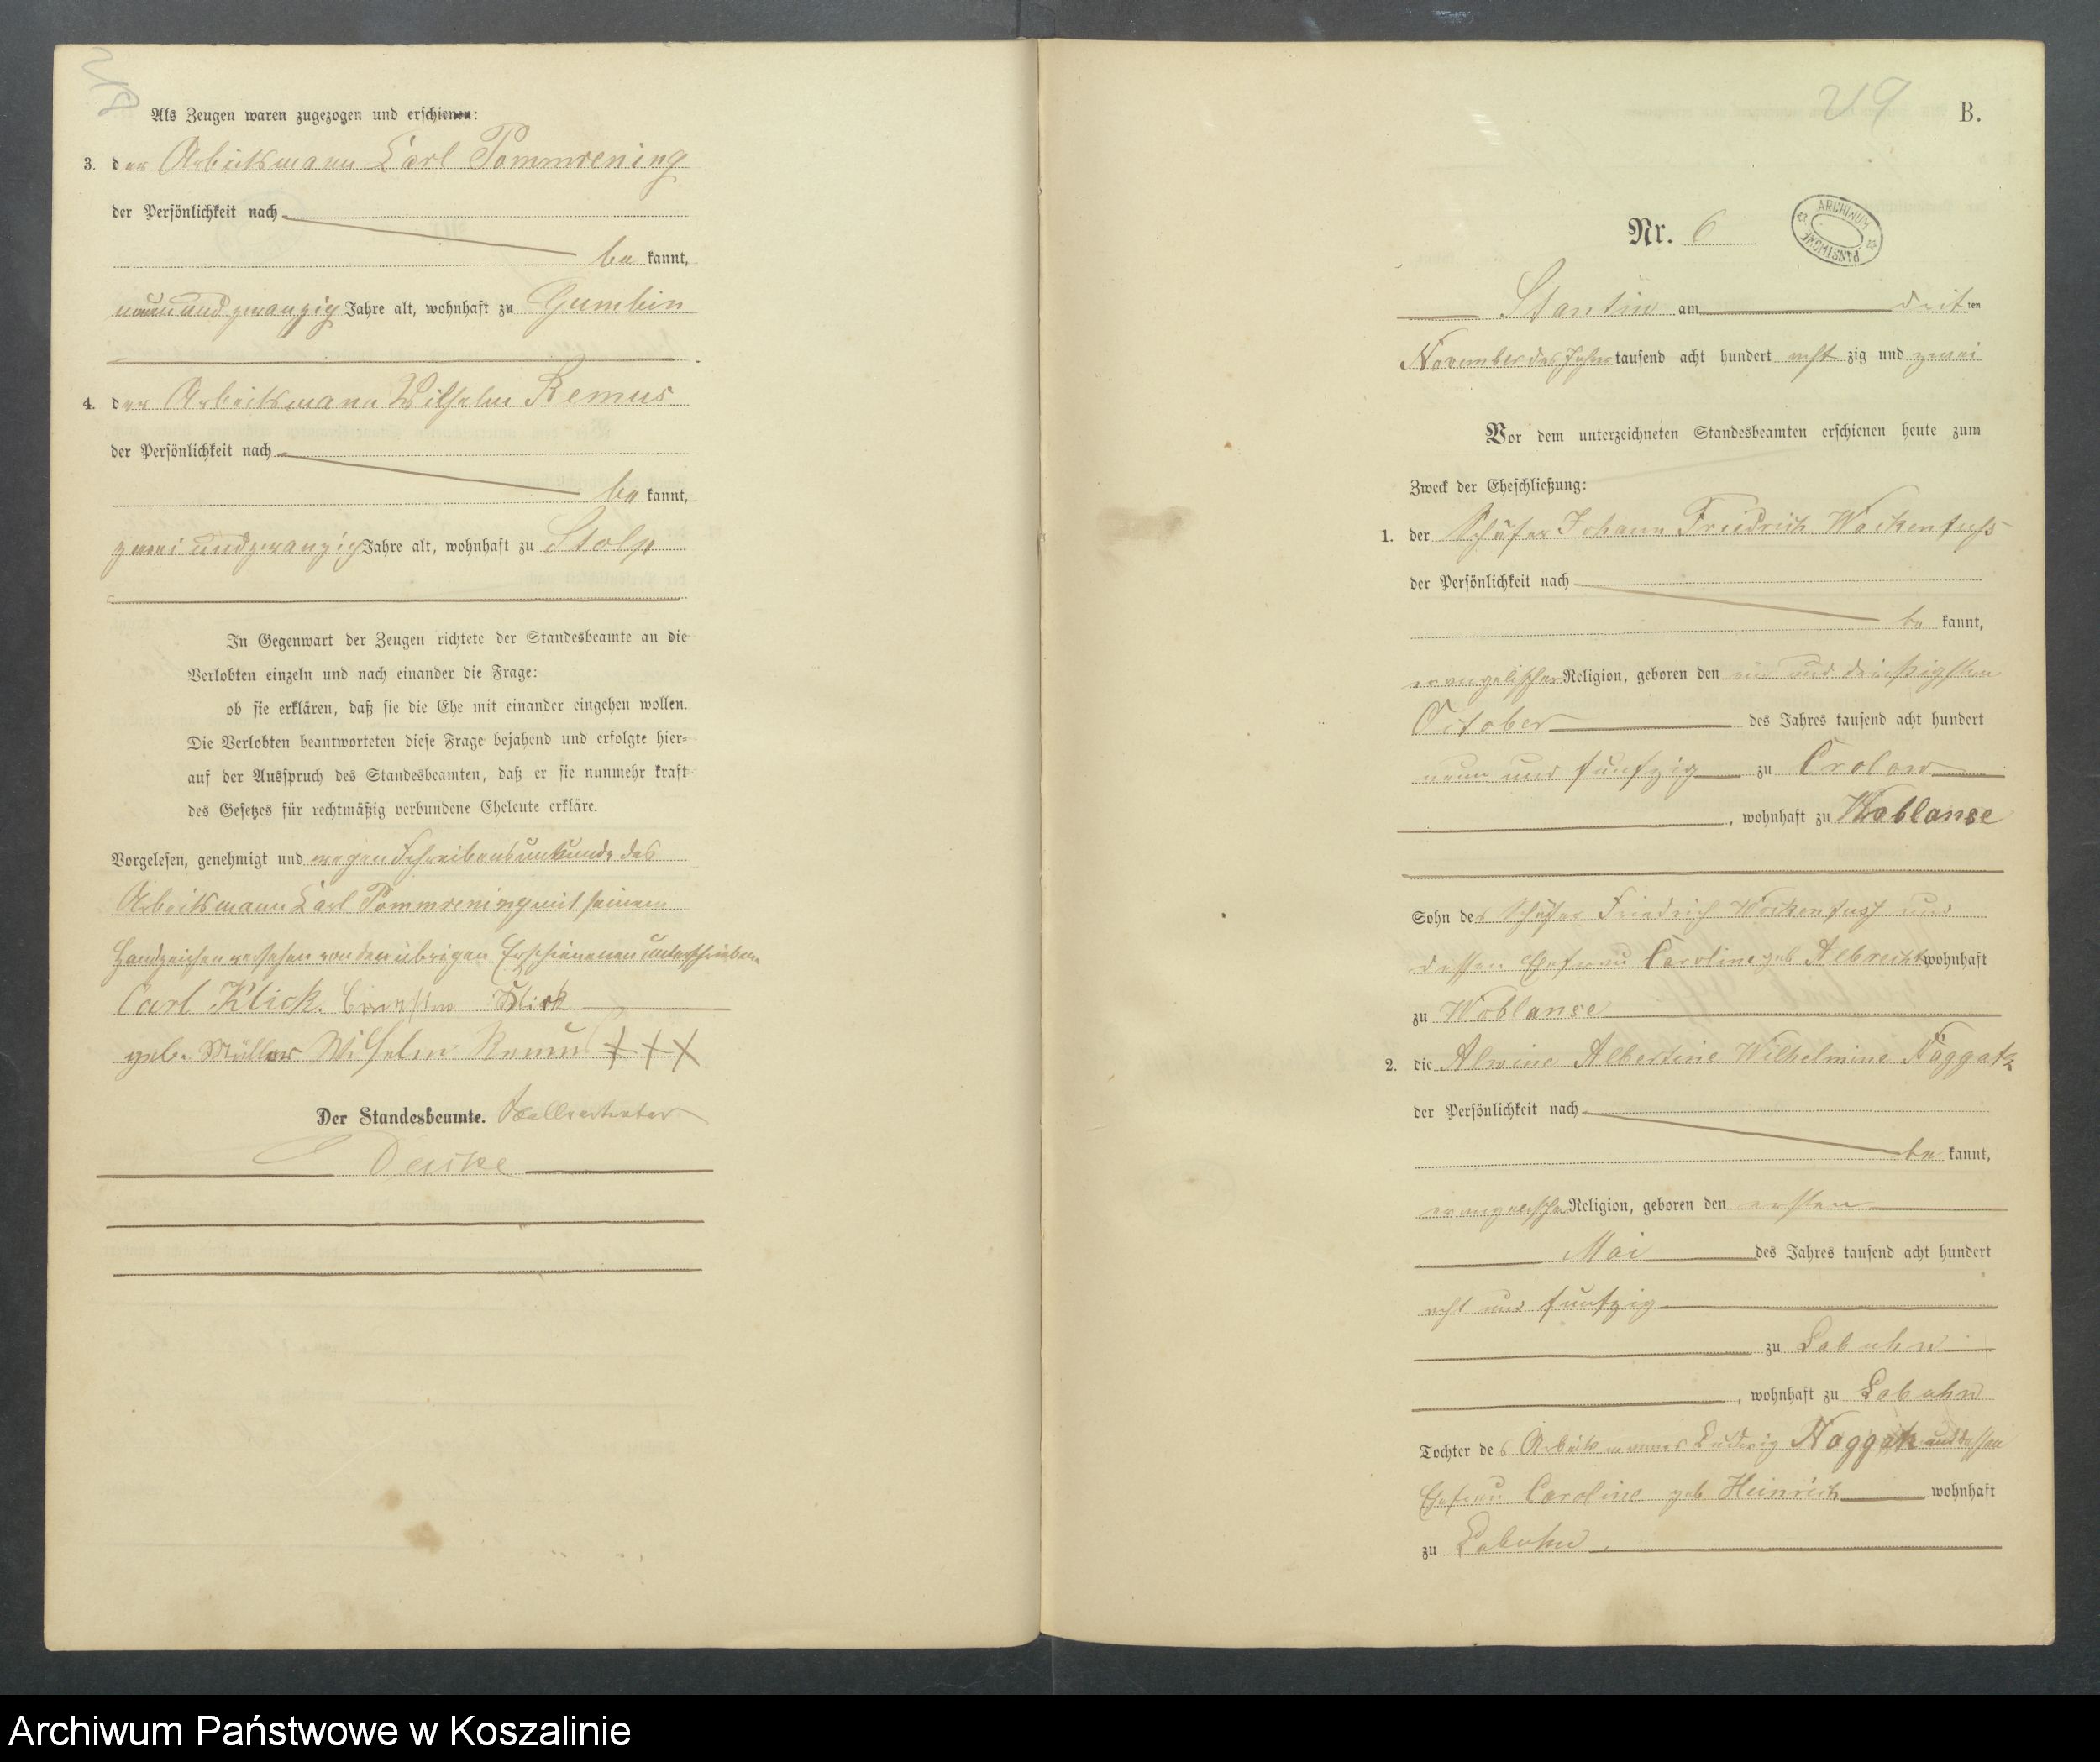 Als Zeugen waren zugezogen und erschienen:
3. der Arbeitsmann Carl Pommrening
der Persönlichkeit nach
be kannt,
neun und zwanzig Jahre alt, wohnhaft zu Gumbin
4. der Arbeitsmann Wilhelm Remus
der Persönlichkeit nach
be kannt,
zwei und zwanzig Jahre alt, wohnhaft zu Stolp
In Gegenwart der Zeugen richtete der Standesbeamte an die
Verlobten einzeln und nach einander die Frage:
ob sie erklären, daß sie die Ehe mit einander eingehen wollen.
Die Verlobten beantworteten diese Frage bejahend und erfolgte hier-
auf der Ausspruch des Standesbeamten, daß er sie nunmehr kraft
des Gesetzes für rechtmäßig verbundene Eheleute erkläre.
Vorgelesen, genehmigt und wegen Schreibensunkunde des
Arbeitsmann Carl Pommrening mit seinem
Handzeichen versehen von den übrigen Erschienenen unterschrieben.
Carl Klick. Klick
geb. Müller Wilhelm Remus +++
Der Standesbeamte. Stellvertreter
29 B.
Nr. 6
ARCHIWUM PAŃSTWOWE
Stantin am dritten
November des Jahres tausend acht hundert acht zig und zwei
Vor dem unterzeichneten Standesbeamten erschienen heute zum
Zweck der Eheschließung:
1. der Schäfer Johann Friedrich Wockenfuhs
der Persönlichkeit nach
be kannt,
evangelischer Religion, geboren den ein und dreißigsten
October des Jahres tausend acht hundert
neun und funfzig zu Crolow
, wohnhaft zu Woblanse
Sohn des Schäfer Friedrich Wockenfuss und
dessen Ehefrau Caroline geb Albrecht wohnhaft
zu Woblanse
2. die Alwine Albertine Wilhelmine Naggatz
der Persönlichkeit nach
be kannt,
evangelischer Religion, geboren den ersten
Mai des Jahres tausend acht hundert
acht und funfzig
zu Labuhn
, wohnhaft zu Labuhn
Tochter des Arbeitsmannes Ludwig Naggatz und dessen
Ehefrau Caroline geb Heinrich wohnhaft
zu Labuhn
Archiwum Państwowe w Koszalinie